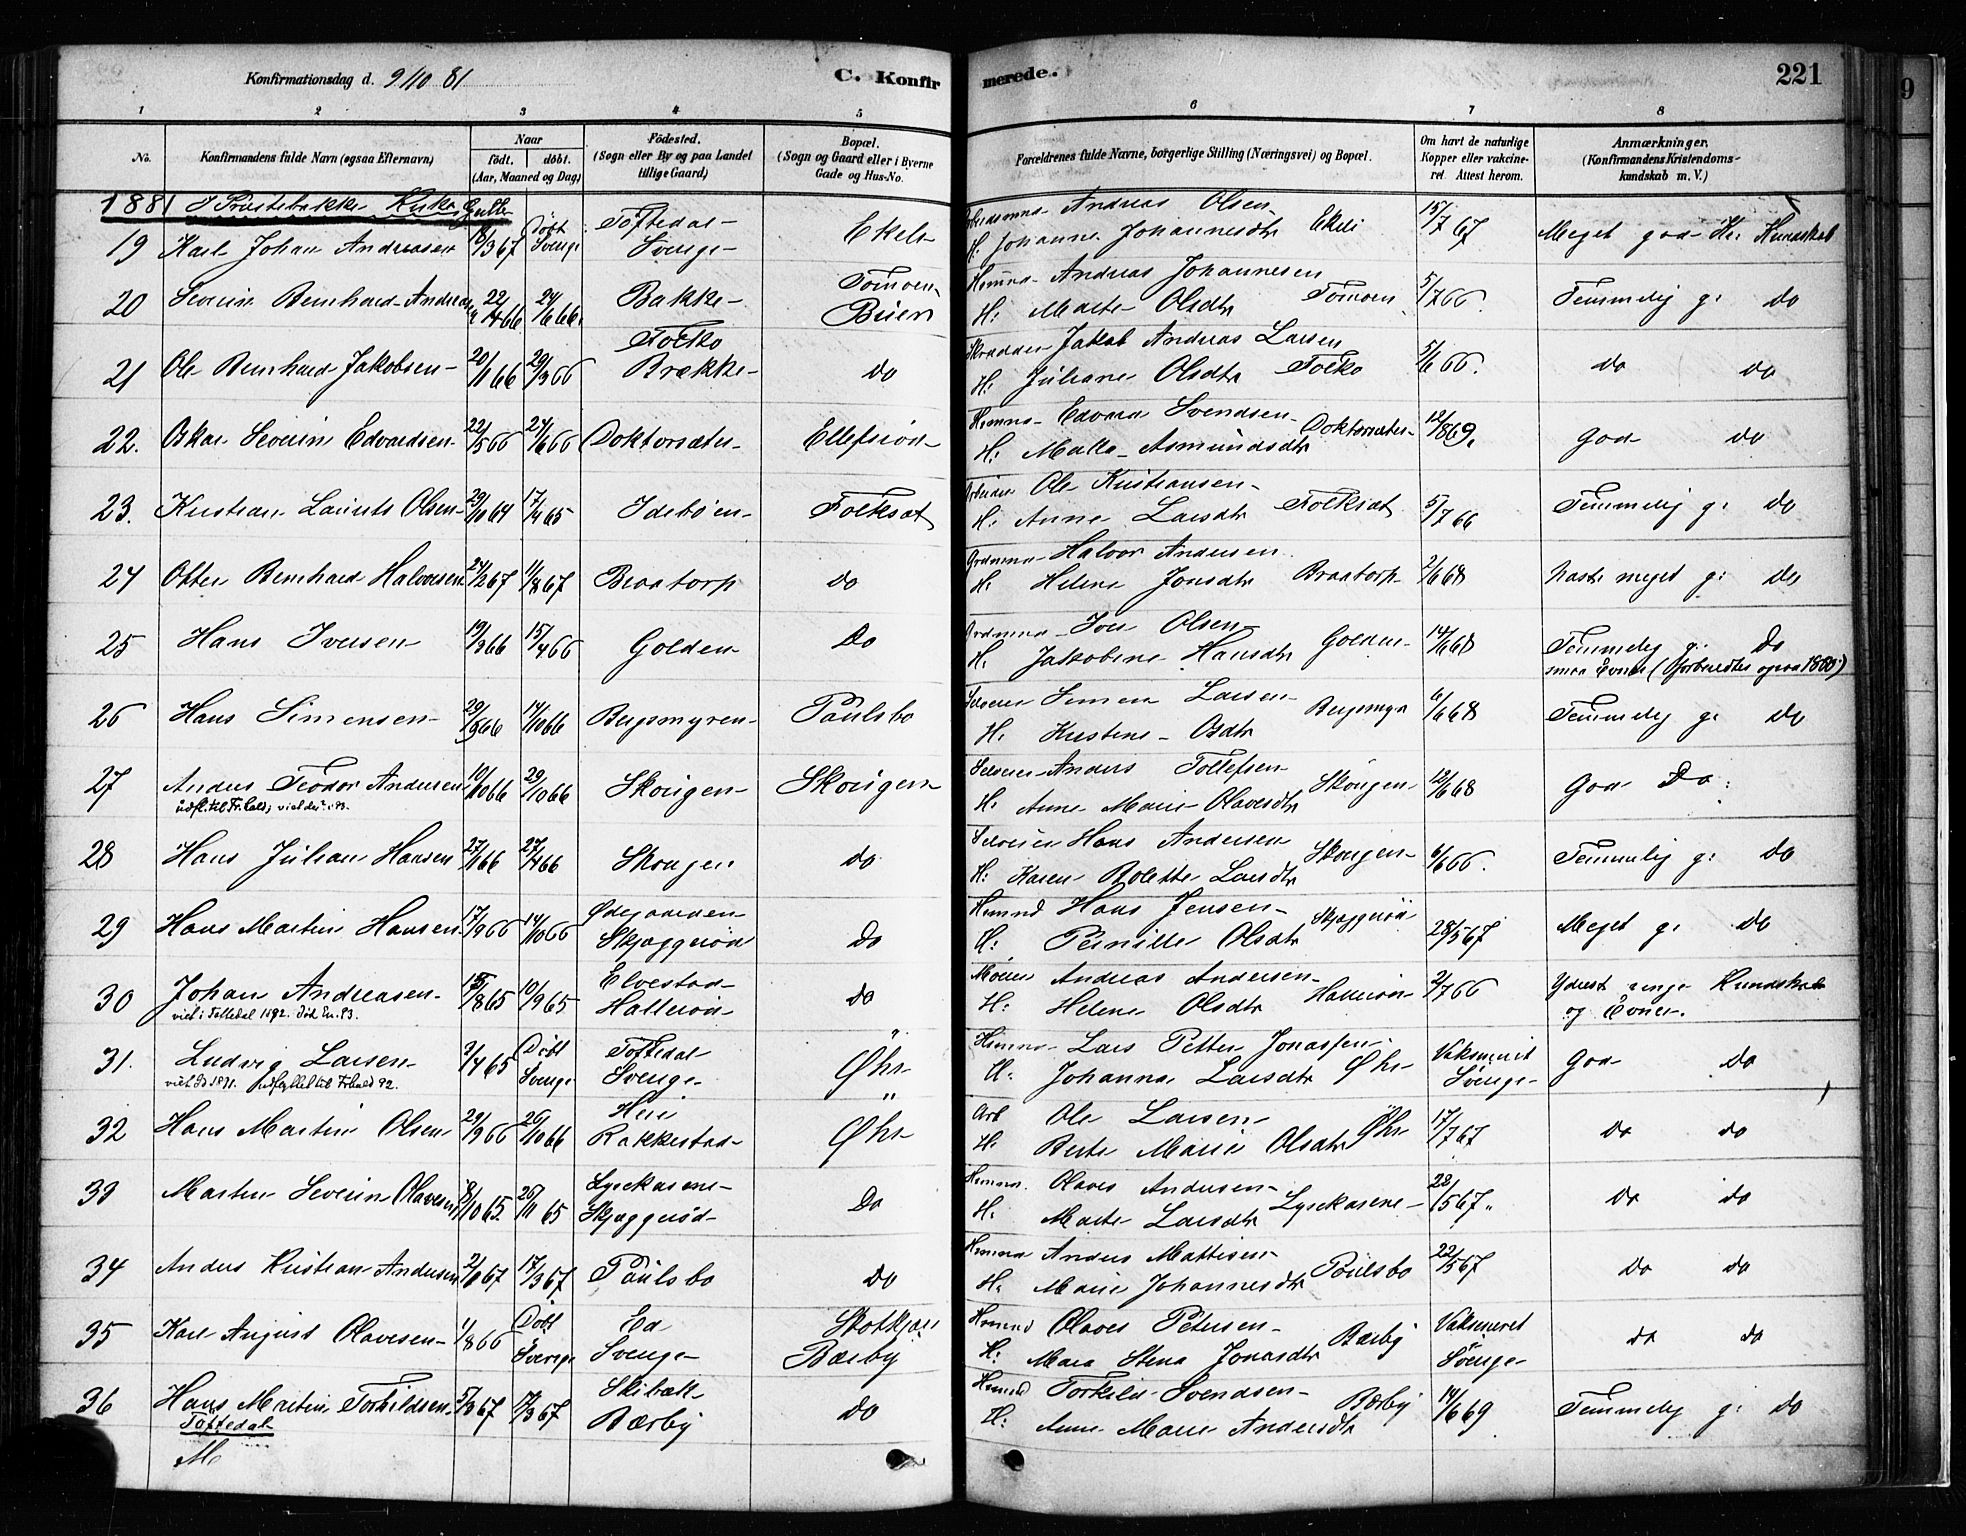 Konfirmationsdag d. 9/10 81
C. Konfirmerede.
221
1 2 3 4 5 6 7 8
No. | Konfirmandens fulde Navn (ogsaa Efternavn) | Naar født. døbt. (Aar, Maaned og Dag) | Fødested. (Sogn eller By og paa Landet tillige Gaard) | Bopæl. (Sogn og Gaard eller i Byerne Gade og Hus-No. | Forældrenes fulde Navne, borgerlige Stilling (Næringsvei) og Bopæl. | Om havt de naturlige Kopper eller vaccineret. Attest herom. | Anmærkninger. (Konfirmandens Kristendomskundskab m. V.)
1881 I Prestebakke Kirke Gutter
19 Karl Johan Andreasen 67 Døbt Sverige Töftedal Sverige Andreas Olsen H: Johanne Johannesdtr Ekeli 15/7 67 Meget god Kr: Kundskab
20 Severin Bernhard Andreas 22/4 66 24/6 66 Bakke Tomoen Andreas Johannesen H: Marte Olsdtr Tomoen 5/7 66. Temmelig g: do
21 Ole Bernhard Jakobsen 20/1 66 29/3 66 Brække do Jakob Andreas Larsen H: Juliane Olsdtr 5/6 66. do do
22. Oskar Severin Edvardsen 22/5 66 24/6 66 Doktorsæter Ellefsrød Edvard Svendsen H: Malla Asmundsdtr Doktorsæter 12/8 69. God do
23. Kristian Laurits Olsen 29/10 64 17/4 65 Idebøen Folksæt Arbeider Ole Kristiansen H: Anne Larsdtr Folksæt 5/7 66 Temmelig g: do
24 Otter Bernhard Halvorsen 24/2 67 11/8 67 Braatorp do Grdmnd Halvor Andersen H: Helene Jonsdtr Braatorp 2/6 68 næste meget g: do
25 Hans Iversen 19/3 66 15/4 66 Golden Do Grdmnd Iver Olsen H: Jakobine Hansdtr Golden 14/6 68 Temmelig g: Do
smaa Evner (forberedtes ogsaa 1880)
26 Hans Simensen 29/9 66 14/10 66 Bergsmyren Paulsbo Selveier Simen Larsen H: Kristine Olsdtr Bergsmyr 6/6 68 Temmelig g: do
27 Anders Teodor Andersen 10/10 66 29/10 66 Skougen Skougen Selveier Anders Tollefsen H: Anne Marie Olavesdtr Skougen 12/6 68 God Do
28 Hans Julian Hansen 27/1 66 27/4 66 Skougen do Selveier Hans Andersen H: Karen Bolette Larsdtr Skougen 6/6 66. Temmelig g: do
29 Hans Martin Hansen 17/9 66 14/10 66 Ødegaarden Skjæggerød Do Hmmd Hans Jensen H: Pernille Olsdtr Skjæggerød 28/5 67 Meget g: do
30 Johan Andreasen 8 65 10/9 65 Elvestad Hallerød do Møller Andreas Andersen H: Helene Olsdtr Hallerød 2/7 66 Yderst ringe Kundskab og Evner.
31. Ludvig Larsen 3/4 65 Døbt Sverige Töftedal Sverige Øhr Lars Petter Jonassen H: Johanna Larsdtr Øhr Vaksineret Sverige God do
32 Hans Martin Olsen 29/9 66 26/10 66 Heie Rakkestad Øhr Arb Ole Larsen H: Berte Marie Olsdtr Øhr 17/7 67 do do
33 Martin Severin Olavesen 8/10 65. 26/11 65 Lysekasene Skjæggerød Do Olaves Andersen H: Marte Larsdtr Lysekasene 22/5 67 do do
34 Anders Kristian Andersen 2/1 67 17/3 67 Paulsbo do Anders Mattisen H: Marie Johannesdtr Paulsbo 22/5 67 do do
35 Karl August Olavesen 1/8 66 Døbt Sverige Ed Sverige Bærby Hmmd Olaves Petersen H: Maja Stina Jonasdtr Bærby Vaksineret Sverige do do
36 Hans Martin Torkildsen 5/3 67 3 67 Skibæk Bærby do Hmmd Torkild Svendsen H: Anne Marie Andersdtr Bærby 14/6 69 Temmelig g: do
Töftedal
M